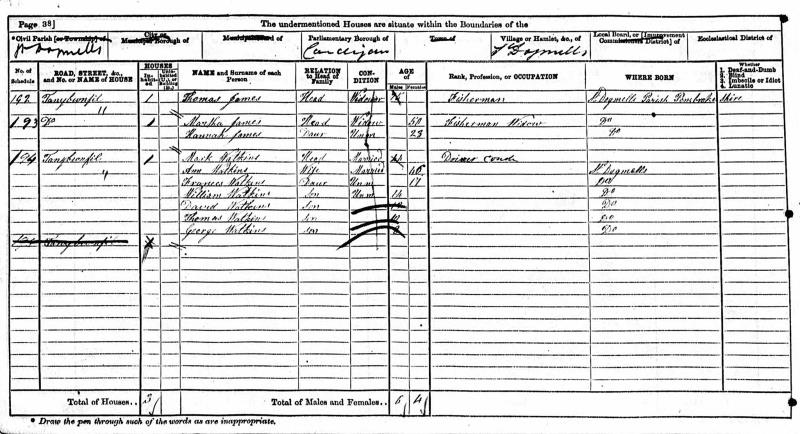 Page 38]
The undermentioned Houses are situate within the Boundaries of the
Civil Parish [or Township] of
St Dogmells
City or Municipal Borough of
Municipal Ward of
Parliamentary Borough of
Cardigan
Town of
Village or Hamlet, &c., of
St Dogmells
Local Board, or [Improvement Commissioners District] of
Ecclesiastical District of
No. of Schedule
ROAD, STREET, &c., and No. or NAME of HOUSE
HOUSES
Inhabited
Uninhabited (U.), or Building (B.)
NAME and Surname of each Person
RELATION to Head of Family
CONDITION
AGE
Males
Females
Rank, Profession, or OCCUPATION
WHERE BORN
Whether
1. Deaf-and-Dumb
2. Blind
3. Imbecile or Idiot
4. Lunatic
192 Tanybwnfil 1 Thomas James Head Widower Fisherman St Dogmells Parish Pembrokeshire
193 Do 1 Martha James Head Widow 50 Fisherman Widow Do
Hannah James Daur Unm 23 Do
194 Tanybwnfil 1 Mark Watkins Head Married 44
Ann Watkins Wife Married 46 St Dogmells
Frances Watkins Daur Unm 17 Do
William Watkins Son Unm 14 Do
David Watkins Son Do
Thomas Watkins Son Do
George Watkins Son Do
Tanybwnfil
Total of Houses.. 3 Total of Males and Females.. 6 4
* Draw the pen through such of the words as are inappropriate.